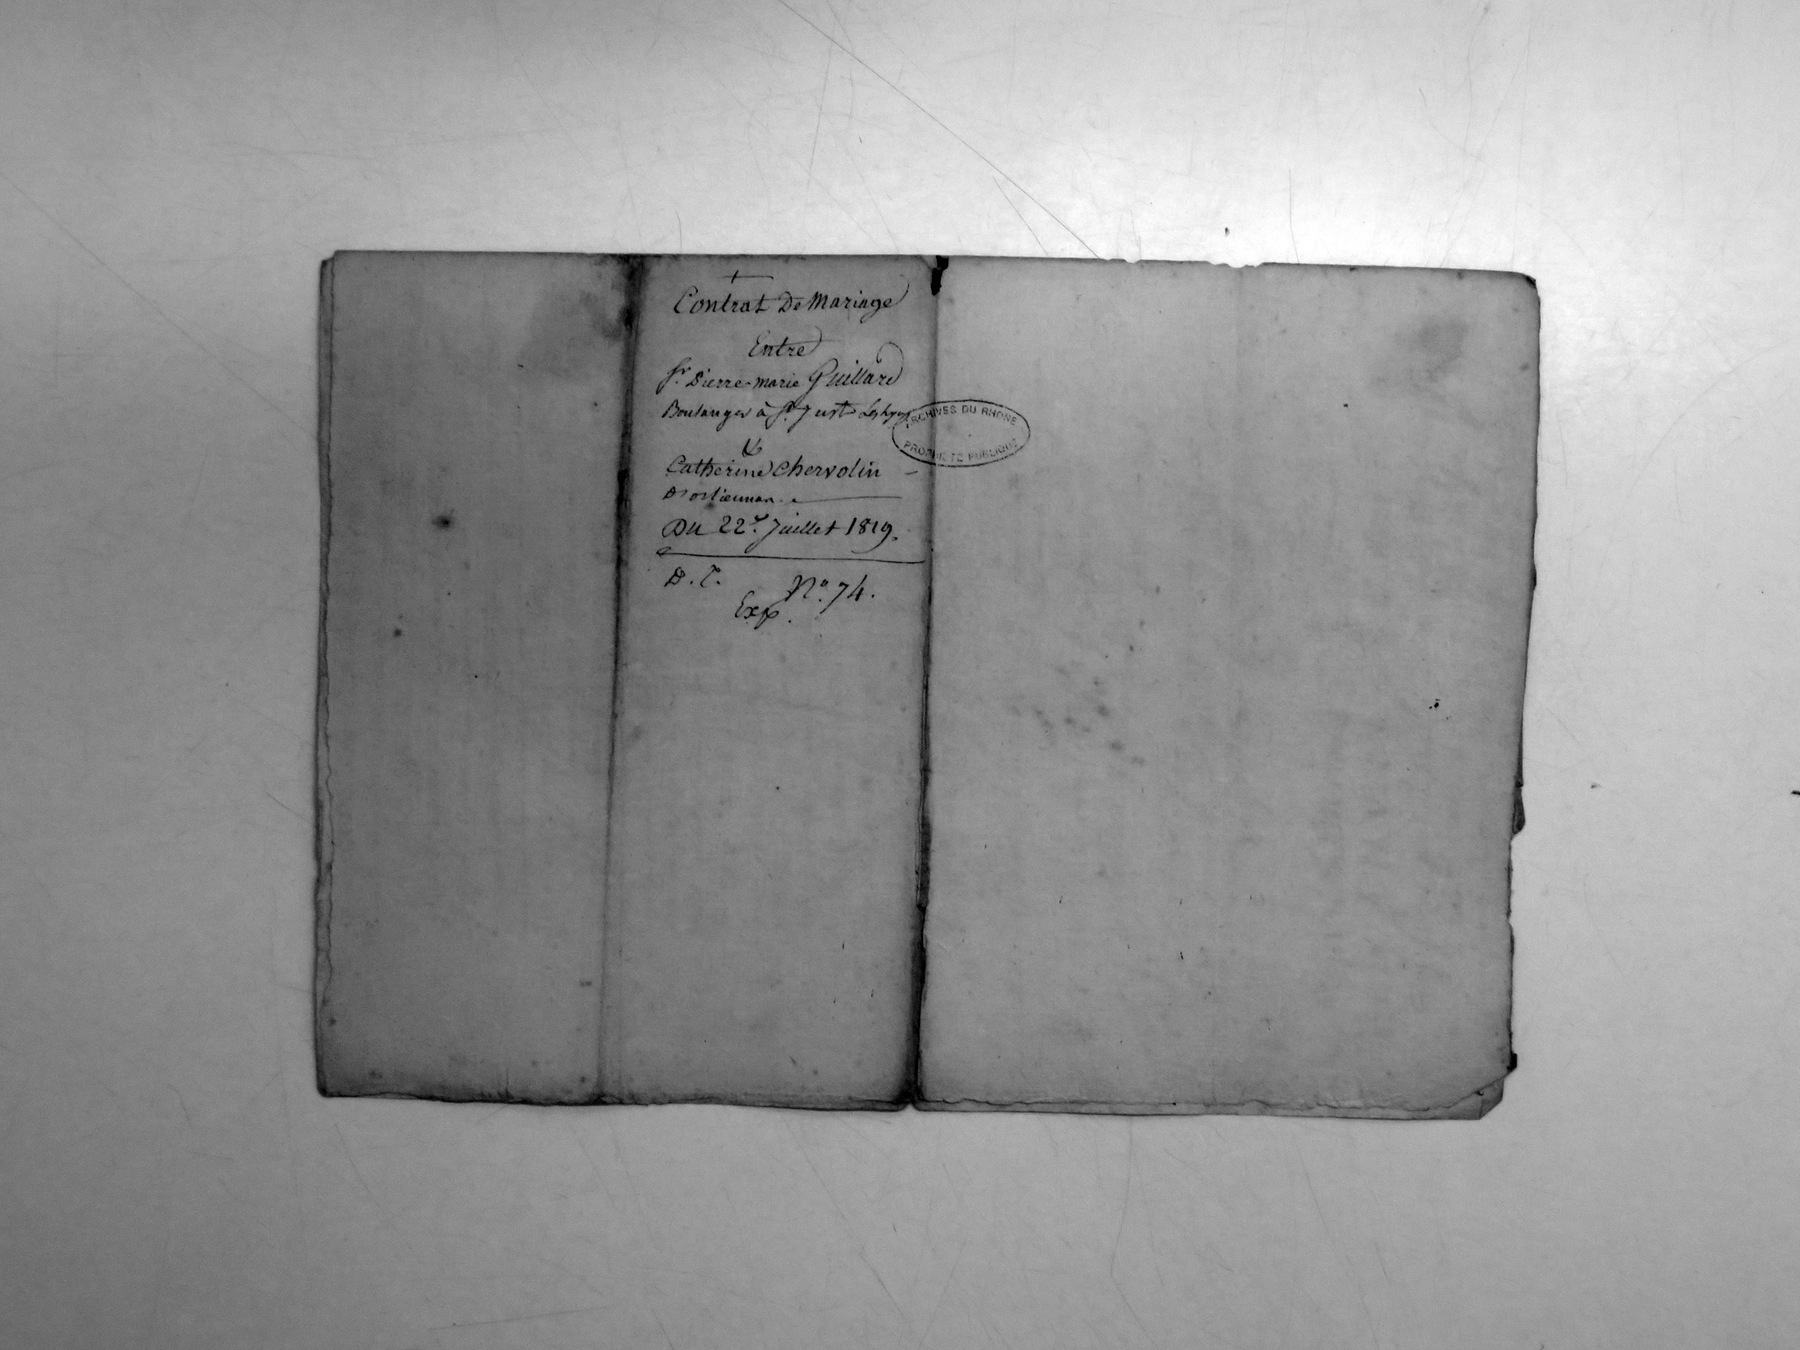 Contrat De Mariage
Entre
Sr. Pierre-marie Guillard
Boulanger à St. Just Les Lyon
&
Catherine Chervolin
Du 22e. Juillet 1819.
D. T. No. 74.
Exp.
ARCHIVES DU RHONE
PROPRIETE PUBLIQUE